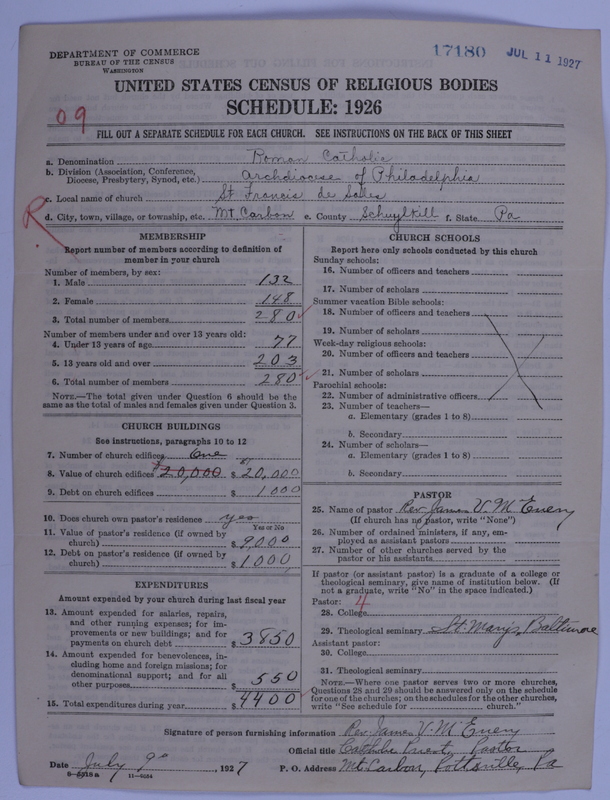 DEPARTMENT OF COMMERCE
BUREAU OF THE CENSUS
WASHINGTON
17180 JUL 11 1927
UNITED STATES CENSUS OF RELIGIOUS BODIES
SCHEDULE: 1926
09
FILL OUT A SEPARATE SCHEDULE FOR EACH CHURCH. SEE INSTRUCTIONS ON THE BACK OF THIS SHEET
a. Denomination Roman Catholic
b. Division (Association, Conference, Diocese, Presbytery, Synod, etc.) Archdiocese of Philadelphia
c. Local name of church St Francis de Sales
d. City, town, village, or township, etc. Mt. Carbon e. County Schuylkill f. State Pa
R.
MEMBERSHIP
Report number of members according to definition of
member in your church
Number of members, by sex:
1. Male 132
2. Female 148
3. Total number of members 280
Number of members under and over 13 years old:
4. Under 13 years of age 77
5. 13 years old and over 203
6. Total number of members 280
NOTE.—The total given under Question 6 should be the
same as the total of males and females given under Question 3.
CHURCH BUILDINGS
See instructions, paragraphs 10 to 12
7. Number of church edifices One
8. Value of church edifices $20,000 $20,000
9. Debt on church edifices $1000
10. Does church own pastor's residence yes
Yes or No
11. Value of pastor's residence (if owned by
church) $9,000
12. Debt on pastor's residence (if owned by
church) $1,000
EXPENDITURES
Amount expended by your church during last fiscal year
13. Amount expended for salaries, repairs,
and other running expenses; for im-
provements or new buildings; and for
payments on church debt $3850
14. Amount expended for benevolences, in-
cluding home and foreign missions; for
denominational support; and for all
other purposes $550
15. Total expenditures during year $4400
CHURCH SCHOOLS
Report here only schools conducted by this church
Sunday schools:
16. Number of officers and teachers
17. Number of scholars
Summer vacation Bible schools:
18. Number of officers and teachers
19. Number of scholars
Week-day religious schools:
20. Number of officers and teachers
21. Number of scholars
Parochial schools:
22. Number of administrative officers
23. Number of teachers—
a. Elementary (grades 1 to 8)
b. Secondary
24. Number of scholars—
a. Elementary (grades 1 to 8)
b. Secondary
PASTOR
25. Name of pastor Rev. James V. McEnery
(If church has no pastor, write "None")
26. Number of ordained ministers, if any, em-
ployed as assistant pastors
27. Number of other churches served by the
pastor or his assistants
If pastor (or assistant pastor) is a graduate of a college or
theological seminary, give name of institution below. (If
not a graduate, write "No" in the space indicated.)
Pastor: 4
28. College
29. Theological seminary St. Mary's, Baltimore
Assistant pastor:
30. College
31. Theological seminary
NOTE.—Where one pastor serves two or more churches,
Questions 28 and 29 should be answered only on the schedule
for one of the churches; on the schedules for the other churches,
write "See schedule for ________ church."
Signature of person furnishing information Rev. James V. McEnery
Official title Catholic Priest, Pastor
Date July 9, 1927 P. O. Address Mt. Carbon, Pottsville, Pa
8-5318a 11-8684